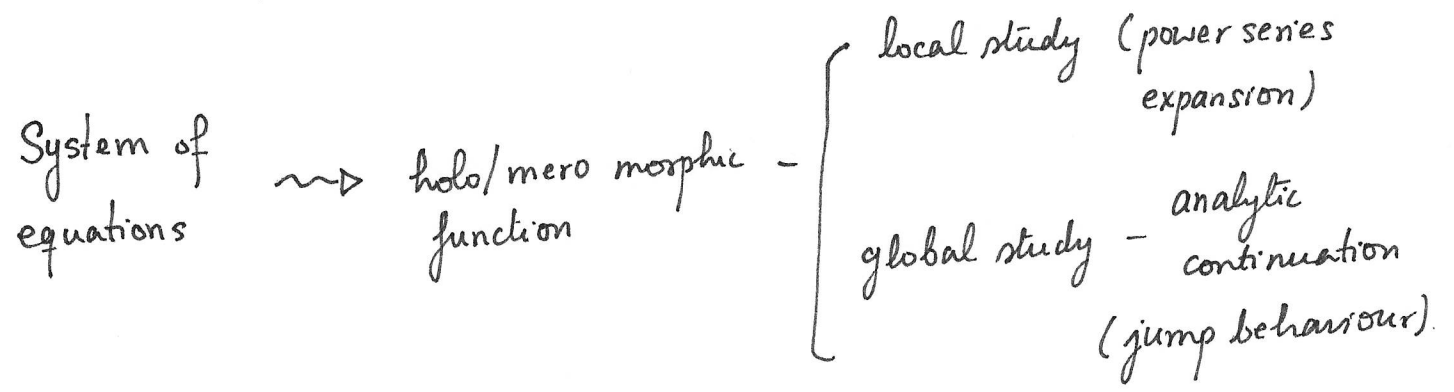 System of
equations
⇝ holo/mero morphic –
function
local study (power series
expansion)
global study – analytic
continuation
(jump behaviour).